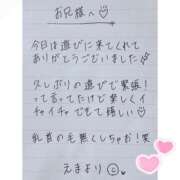 お兄様へ♡
今日は遊びに来てくれて
ありがとうございました
久しぶりの遊びで緊張！
って言ってたけど楽しくイ
チャイチャできて嬉しい♡
乳首の毛無くしちゃお！笑
えまより